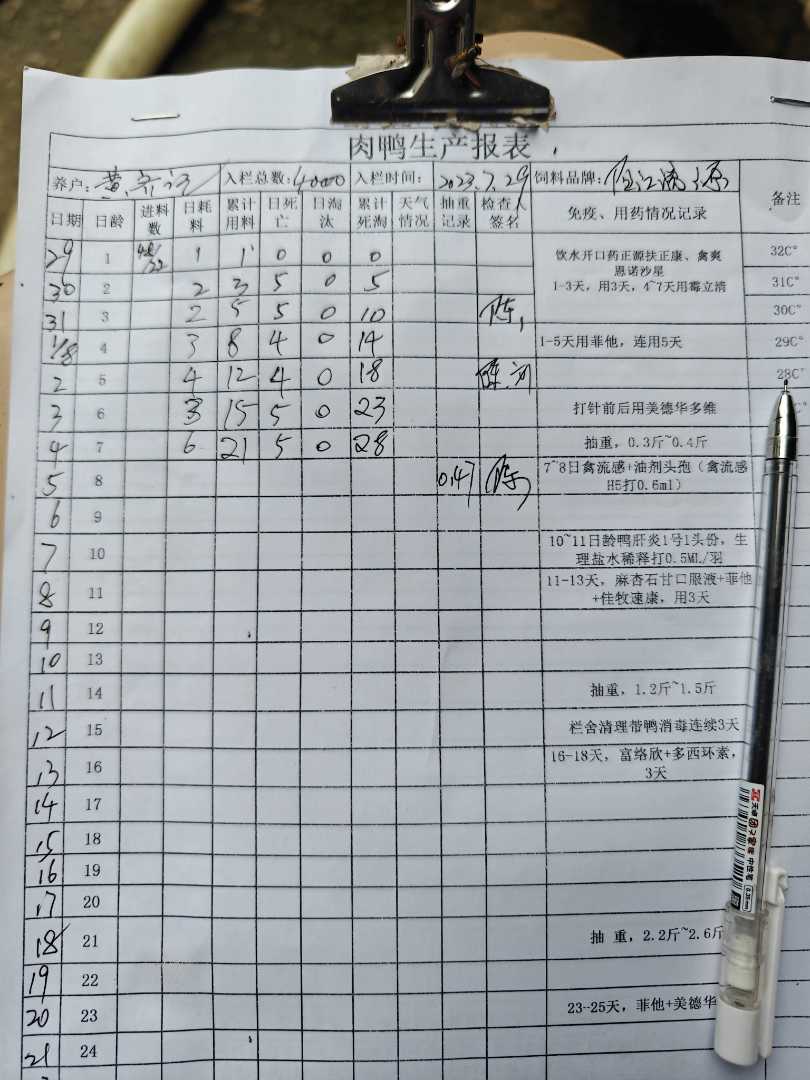 肉鸭生产报表
养户: 黄 入栏总数: 4000 入栏时间: 2023.7.29 饲料品牌: 源 备注
日期 日龄 进料数 日耗料 累计用料 日死亡 日淘汰 累计死淘 天气情况 抽重记录 检查人签名 免疫、用药情况记录
29 1 1 1 0 0 0 饮水开口药正源扶正康、禽爽 32C°
恩诺沙星
30 2 2 3 5 0 5 1-3天，用3天，4~7天用霉立清 31C°
31 3 2 5 5 0 10 陈 30C°
1/8 4 3 8 4 0 14 1-5天用菲他，连用5天 29C°
2 5 4 12 4 0 18 陈 28C°
3 6 3 15 5 0 23 打针前后用美德华多维 C°
4 7 6 21 5 0 28 抽重，0.3斤~0.4斤
5 8 0.47 陈 7~8日禽流感+油剂头孢（禽流感
H5打0.6ml）
6 9
7 10 10~11日龄鸭肝炎1号1头份，生
理盐水稀释打0.5ML/羽
8 11 11-13天，麻杏石甘口服液+菲他
+佳牧速康，用3天
9 12
10 13
11 14 抽重，1.2斤~1.5斤
12 15 栏舍清理带鸭消毒连续3天
13 16 16-18天，富络欣+多西环素，
3天
14 17
15 18
16 19
17 20
18 21 抽 重，2.2斤~2.6斤
19 22
20 23 23-25天，菲他+美德华
21 24
中性笔
0.35mm